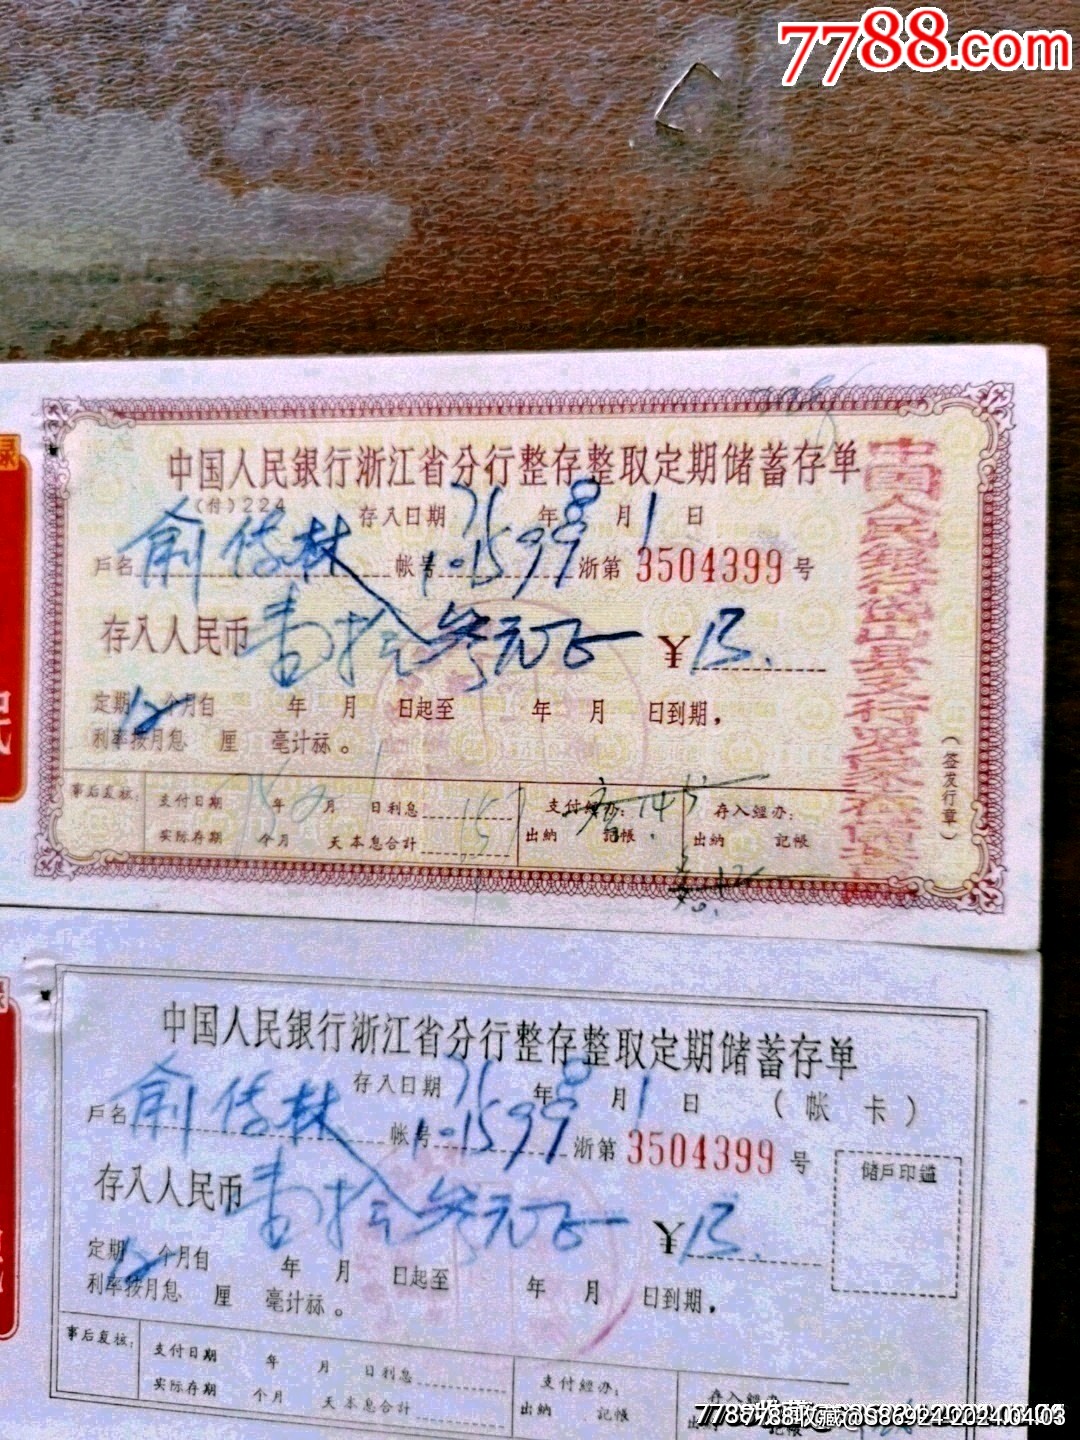 7788.com
中国人民银行浙江省分行整存整取定期储蓄存单
(付)224
存入日期 75年8月1日
戶名 俞信林 帐号 1-1599 浙第 3504399 号
存入人民币 壹拾叁元正 ¥13.
定期12个月自 年 月 日起至 年 月 日到期，
利率按月息 厘 毫计祘。
中国人民银行岱山县支行
(签发行章)
事后复核：
支付日期 年 月 日利息
支付經办：
存入經办：
实际存期 个月 天本息合計
出納 記帳
出納 記帳
中国人民银行浙江省分行整存整取定期储蓄存单
存入日期 75年8月1日 (帐卡)
戶名 俞信林 帐号 1-1599 浙第 3504399 号
存入人民币 壹拾叁元正 ¥13.
储戶印鑑
定期12个月自 年 月 日起至 年 月 日到期，
利率按月息 厘 毫计祘。
事后复核：
支付日期 年 月 日利息
支付經办：
存入經办
实际存期 个月 天本息合計
出納 記帳
出納 記帳
7788收藏@S86924-2024/04/03